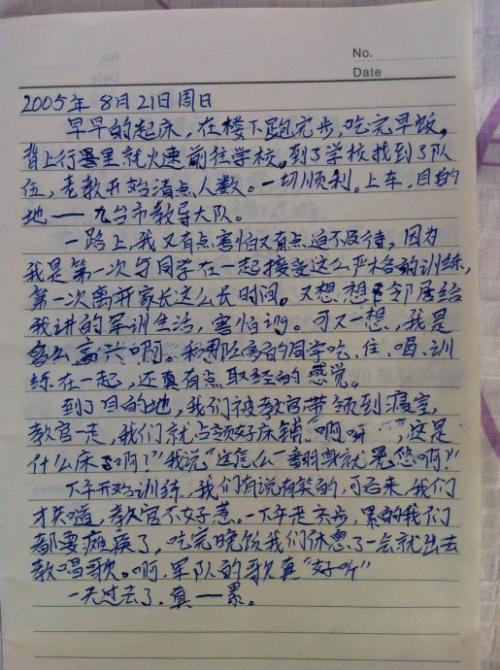 No.
Date
2005年8月21日周日
早早的起床，在楼下跑完步，吃完早饭，
背上行李里就火速前往学校。到了学校找到了队
伍，老教开始清点人数。一切顺利。上车，目的
地——九台市教导大队。
一路上，我又有点害怕又有点迫不及待，因为
我是第一次与同学在一起接受这么严格的训练，
第一次离开家长这么长时间。又想想邻居给
我讲的军训生活，害怕。可又一想，我是
多么高兴啊。和那么多的同学吃、住、喝、训
练在一起，还真有点取经的感觉。
到了目的地，我们被教官带领到寝室，
教官一走，我们就占领好床铺，"啊呀，这是
什么床啊？"我说"这怎么一翻身就晃悠啊？"
下午开始训练，我们有说有笑的，可后来，我们
才知道，教官不好惹。一下午走六步，累的我们
都要瘫痪了，吃完晚饭我们休息了一会就出去
教唱歌。啊，军队的歌真"好听"
一天过去了，真一累。